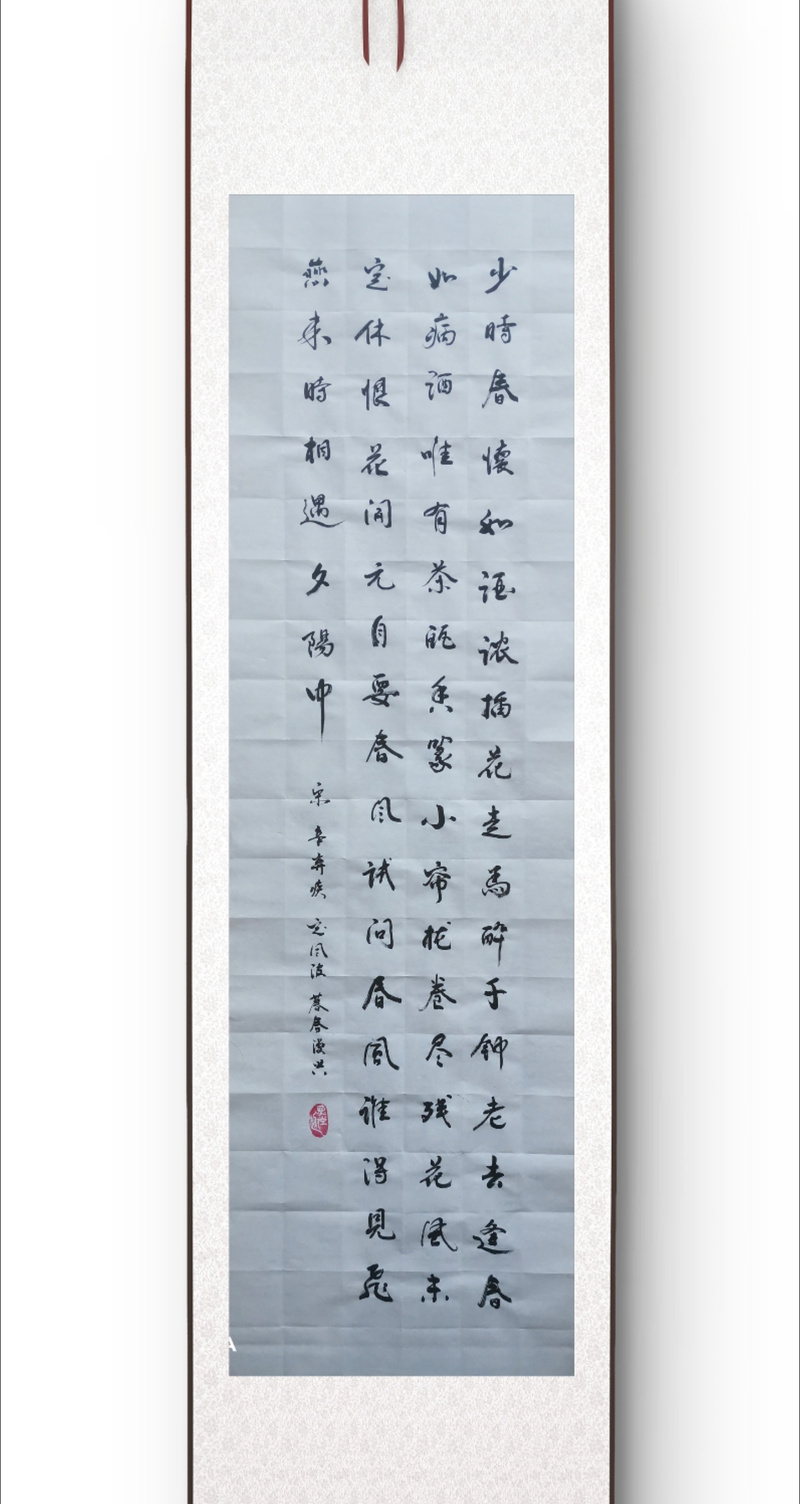 少時春懷似酒浓插花走馬醉千鍾老去逢春
如病酒唯有茶瓯香篆小帘栊卷尽残花風未
定休恨花開元自要春風試問春風誰得見飛
燕来時相遇夕陽中
宋 辛弃疾 定風波 暮春漫兴